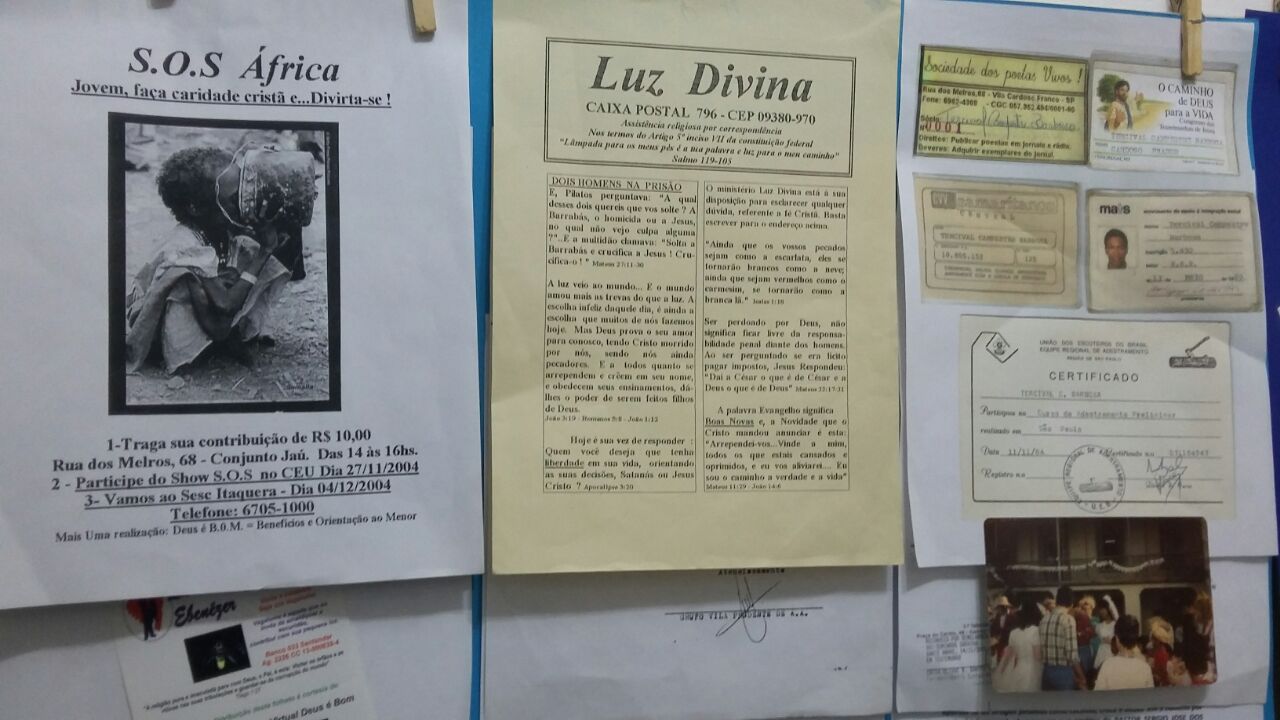 S.O.S África
Jovem, faça caridade cristã e...Divirta-se !
1-Traga sua contribuição de R$ 10,00
Rua dos Melros, 68 - Conjunto Jaú. Das 14 às 16hs.
2 - Participe do Show S.O.S no CEU Dia 27/11/2004
3- Vamos ao Sesc Itaquera - Dia 04/12/2004
Telefone: 6705-1000
Mais Uma realização: Deus é B.O.M. = Benefícios e Orientação ao Menor
Ebenézer
Banco 033 Santander
Virtual Deus é Bom
Luz Divina
CAIXA POSTAL 796 - CEP 09380-970
Assistência religiosa por correspondência
Nos termos do Artigo 5º inciso VII da constituição federal
"Lâmpada para os meus pés é a tua palavra e luz para o meu caminho"
Salmo 119-105
DOIS HOMENS NA PRISÃO
E, Pilatos perguntava: "A qual
desses dois quereis que vos solte ? A
Barrabás, o homicida ou a Jesus,
no qual não vejo culpa alguma
?"..E a multidão clamava: "Solta a
Barrabás e crucifica a Jesus ! Cru-
cifica-o ! " Mateus 27/11-30
A luz veio ao mundo... E o mundo
amou mais as trevas do que a luz. A
escolha infeliz daquele dia, é ainda a
escolha que muitos de nós fazemos
hoje. Mas Deus prova o seu amor
para conosco, tendo Cristo morrido
por nós, sendo nós ainda
pecadores. E a todos quanto se
arrependem e crêem em seu nome,
e obedecem seus ensinamentos, dá-
lhes o poder de serem feitos filhos
de Deus.
João 3:19 - Romanos 5:8 - João 1:12
Hoje é sua vez de responder :
Quem você deseja que tenha
liberdade em sua vida, orientando
as suas decisões, Satanás ou Jesus
Cristo ? Apocalipse 3:20
O ministério Luz Divina está à sua
disposição para esclarecer qualquer
dúvida, referente a fé Cristã. Basta
escrever para o endereço acima.
"Ainda que os vossos pecados
sejam como a escarlata, eles se
tornarão brancos como a neve;
ainda que sejam vermelhos como o
carmesim, se tornarão como a
branca lã." Isaías 1:18
Ser perdoado por Deus, não
significa ficar livre da responsa-
bilidade penal diante dos homens.
Ao ser perguntado se era lícito
pagar impostos, Jesus Respondeu:
"Dai a César o que é de César e a
Deus o que é de Deus" Mateus 22:17-21
A palavra Evangelho significa
Boas Novas e, a Novidade que o
Cristo mandou anunciar é esta:
"Arrependei-vos...Vinde a mim,
todos os que estais cansados e
oprimidos, e eu vos aliviarei... Eu
sou o caminho a verdade e a vida"
Mateus 11:29 - João 14:6
Atenciosamente
GRUPO VILA PRUDENTE DE A.A.
Sociedade dos poetas Vivos !
Rua dos Melros,68 - Vila Cardoso Franco - SP
0001
Direitos: Publicar poesias em jornais e rádio.
Deveres: Adquirir exemplares do jornal.
O CAMINHO
de DEUS
para a VIDA
samaritano
TERCIVAL CAMPESTRE BARBOSA
mais
CERTIFICADO
UNIÃO DOS ESCOTEIROS DO BRASIL
EQUIPE REGIONAL DE ADESTRAMENTO
REGIÃO DE SÃO PAULO
TERCIVAL C. BARBOSA
Participou no Curso de Adestramento Preliminar
realizado em São Paulo
Data 11/11/84 Certificado no.
Registro n.o